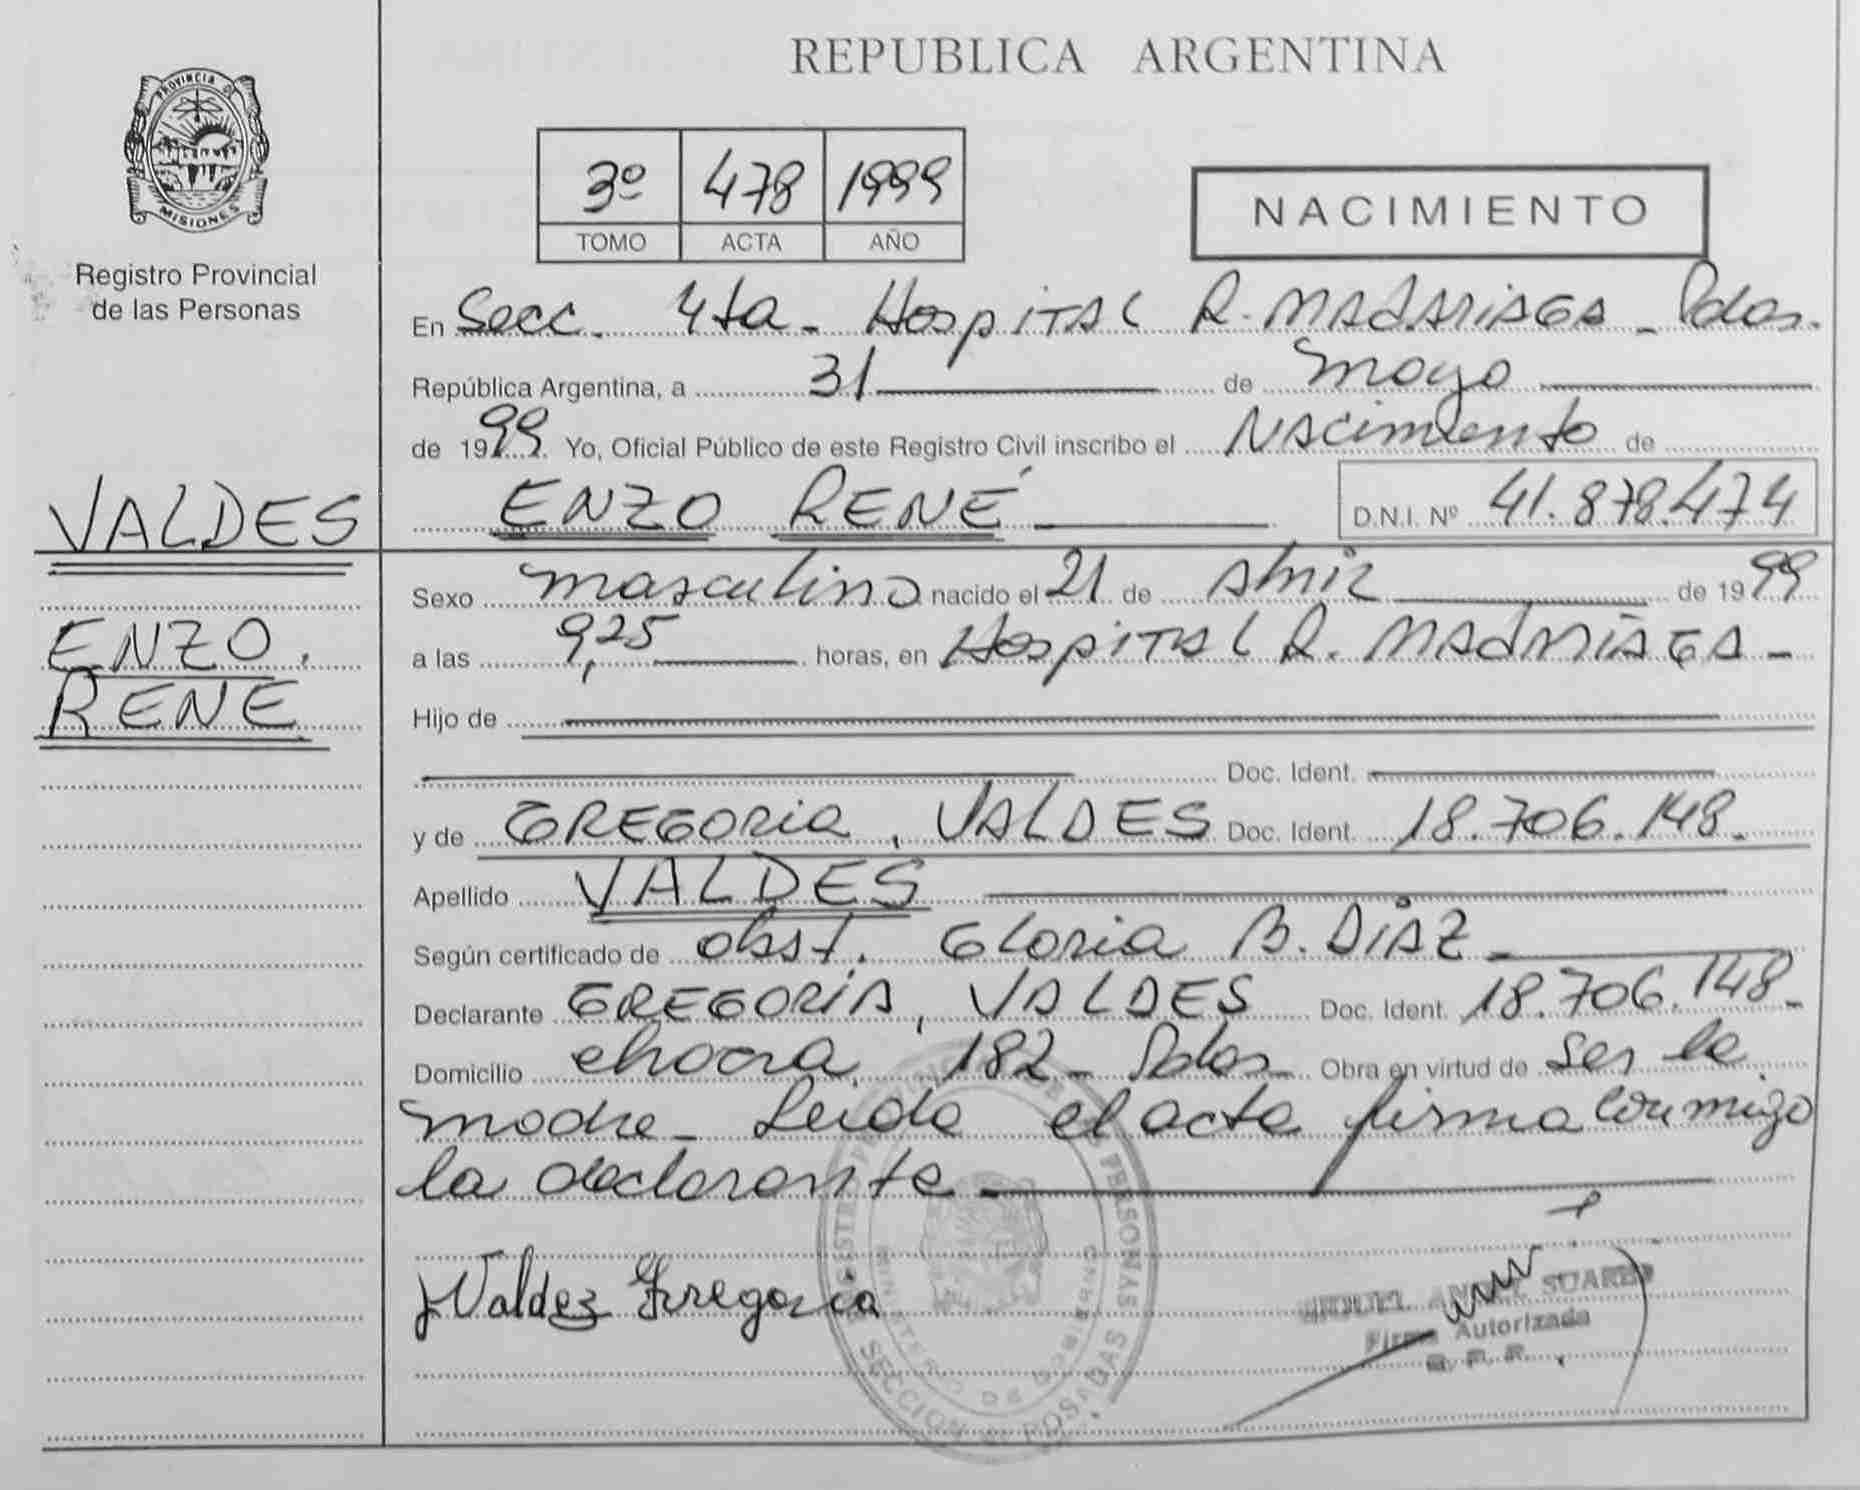 REPUBLICA ARGENTINA
PROVINCIA DE
MISIONES
Registro Provincial
de las Personas
3º 478 1999
TOMO ACTA AÑO
NACIMIENTO
En Secc. 4ta - Hospital R. MADARIAGA - Pdas.
República Argentina, a 31 de mayo
de 1999. Yo, Oficial Público de este Registro Civil inscribo el Nacimiento de
VALDES
ENZO RENÉ D.N.I. Nº 41.878.474
ENZO
RENE
Sexo masculino nacido el 21 de Abril de 1999
a las 9,25 horas, en Hospital R. MADARIAGA -
Hijo de
Doc. Ident.
y de GREGORIA, VALDES Doc. Ident. 18.706.148.
Apellido VALDES
Según certificado de obst. Gloria B. DíAZ -
Declarante GREGORIA, VALDES Doc. Ident. 18.706.148 -
Domicilio chacra, 182 - Pdas - Obra en virtud de ser la
madre - Leida el acta firma conmigo
la declarante -
Valdez Gregoria
MIGUEL ANGEL SUAREZ
Firma Autorizada
R. P. P.
PERSONAS
MINISTERIO DE GOBIERNO
SECCION 4ª POSADAS